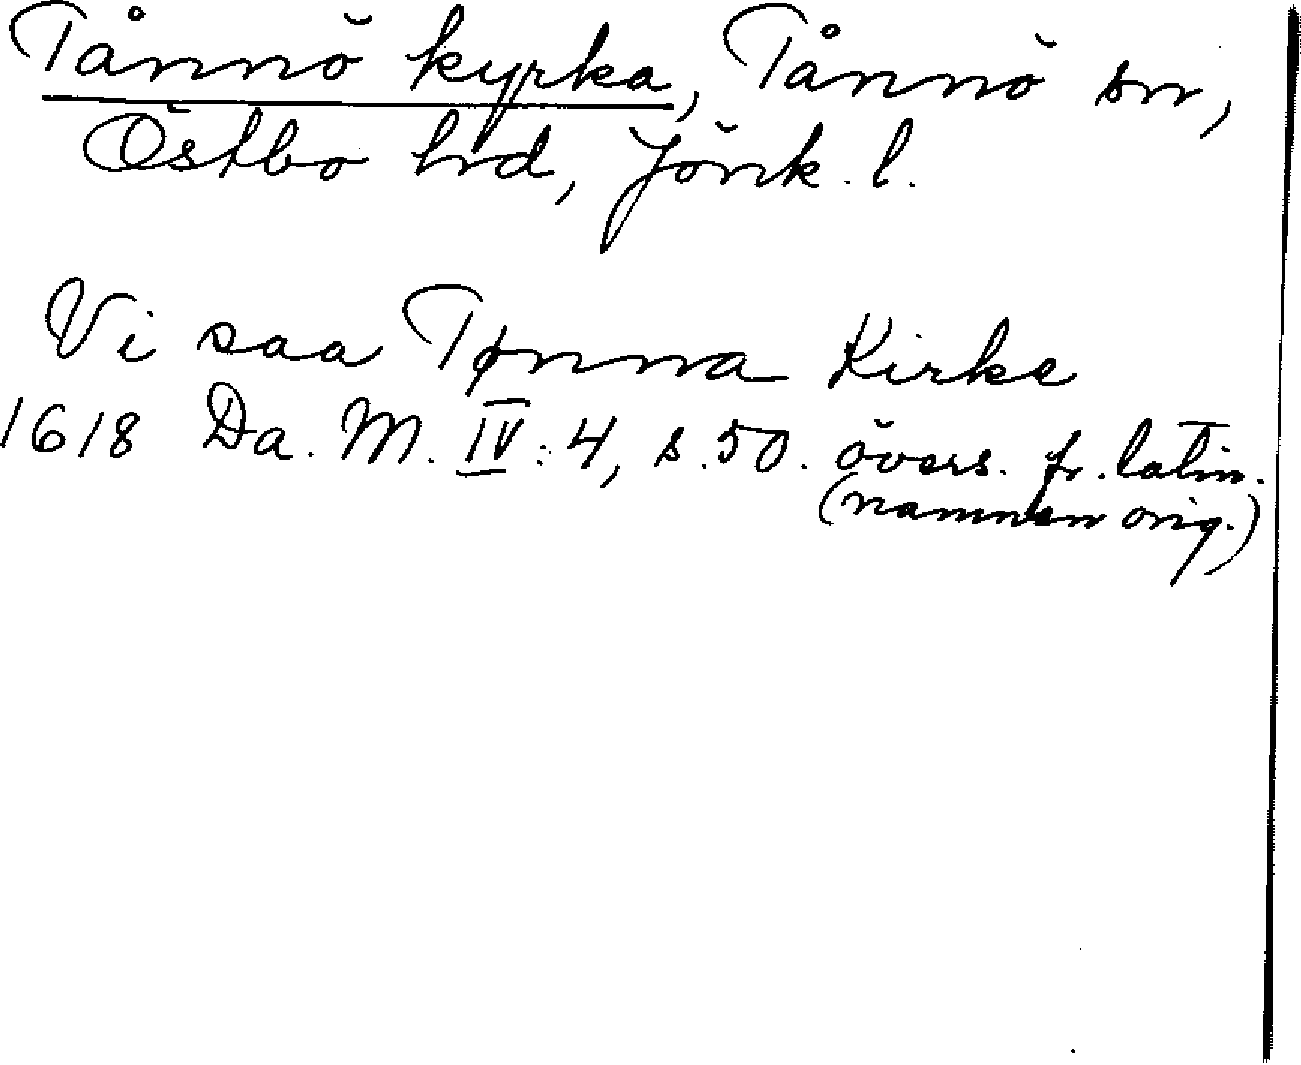 Tånnö kyrka, Tånnö sn,
Östbo hd, Jönk. l.
Vi saa Tønna Kirke
1618 Da. M. IV: 4, s. 50. övers. fr. latin.
(namnen orig.)